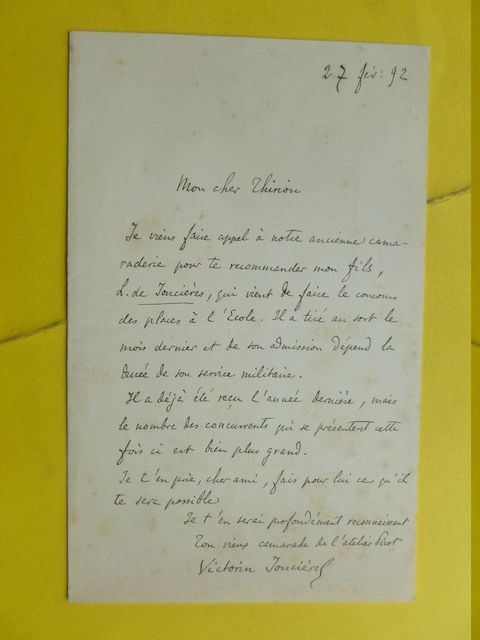 27 fév : 92
Mon cher Thirion
Je viens faire appel à notre ancienne cama-
raderie pour te recommander mon fils,
L. de Joncières, qui vient de faire le concours
des places à l'Ecole. Il a tiré au sort le
mois dernier et de son admission dépend la
durée de son service militaire.
Il a déjà été reçu l'année dernière, mais
le nombre des concurrents qui se présentent cette
fois ci est bien plus grand.
Je t'en prie, cher ami, fais pour lui ce qu'il
te sera possible
Je t'en serai profondément reconnaissant
Ton vieux camarade de l'atelier Picot
Victorin Joncières